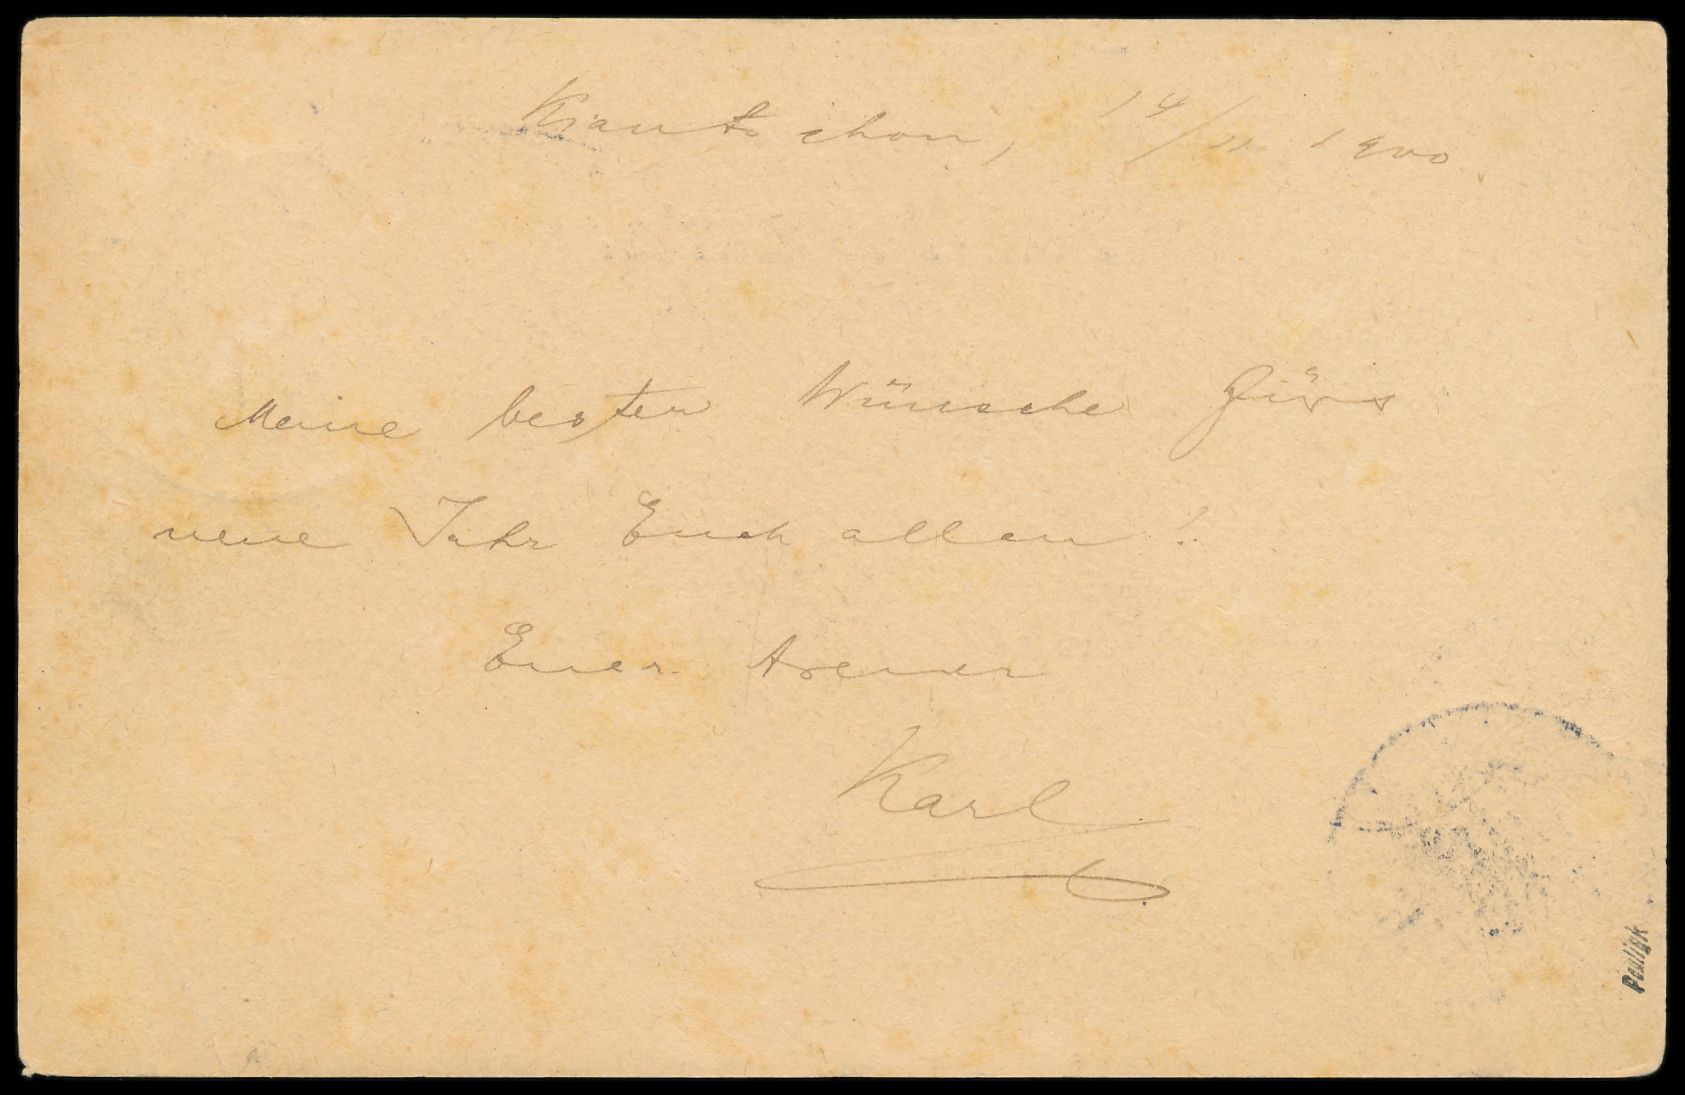 Kiautschou, 14/11 1900.
Meine besten Wünsche fürs
neue Jahr Euch allen!
Euer treuer
Karl
Pauligk